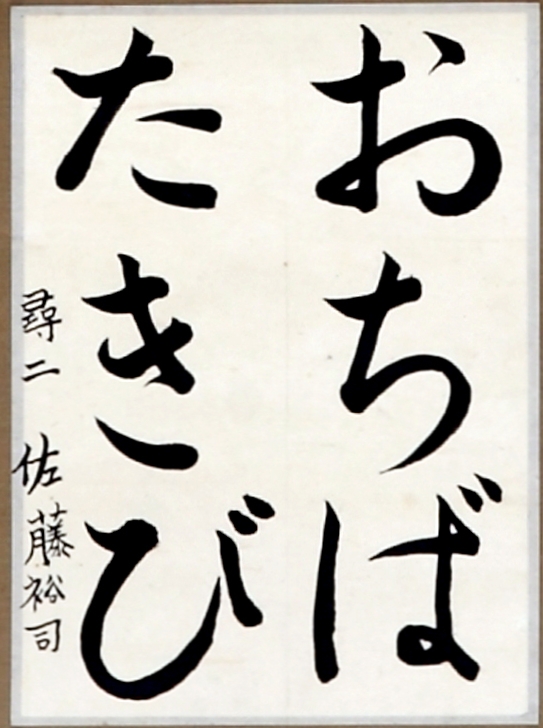 おちば
たきび
尋二 佐藤裕司